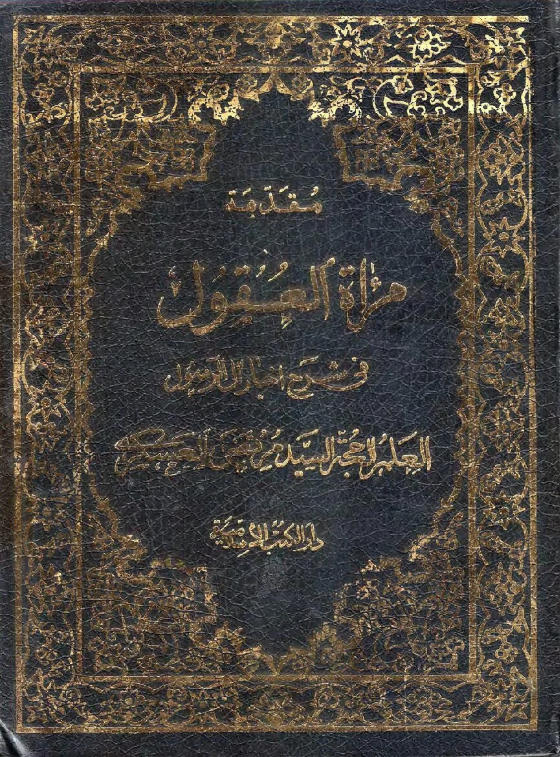 مُقَدّمَة
مرآة العُقُول
في شرح أخبار آل الرسول
العلم الحجة السيد مرتضى العسكري
دار الكتب الإسلامية